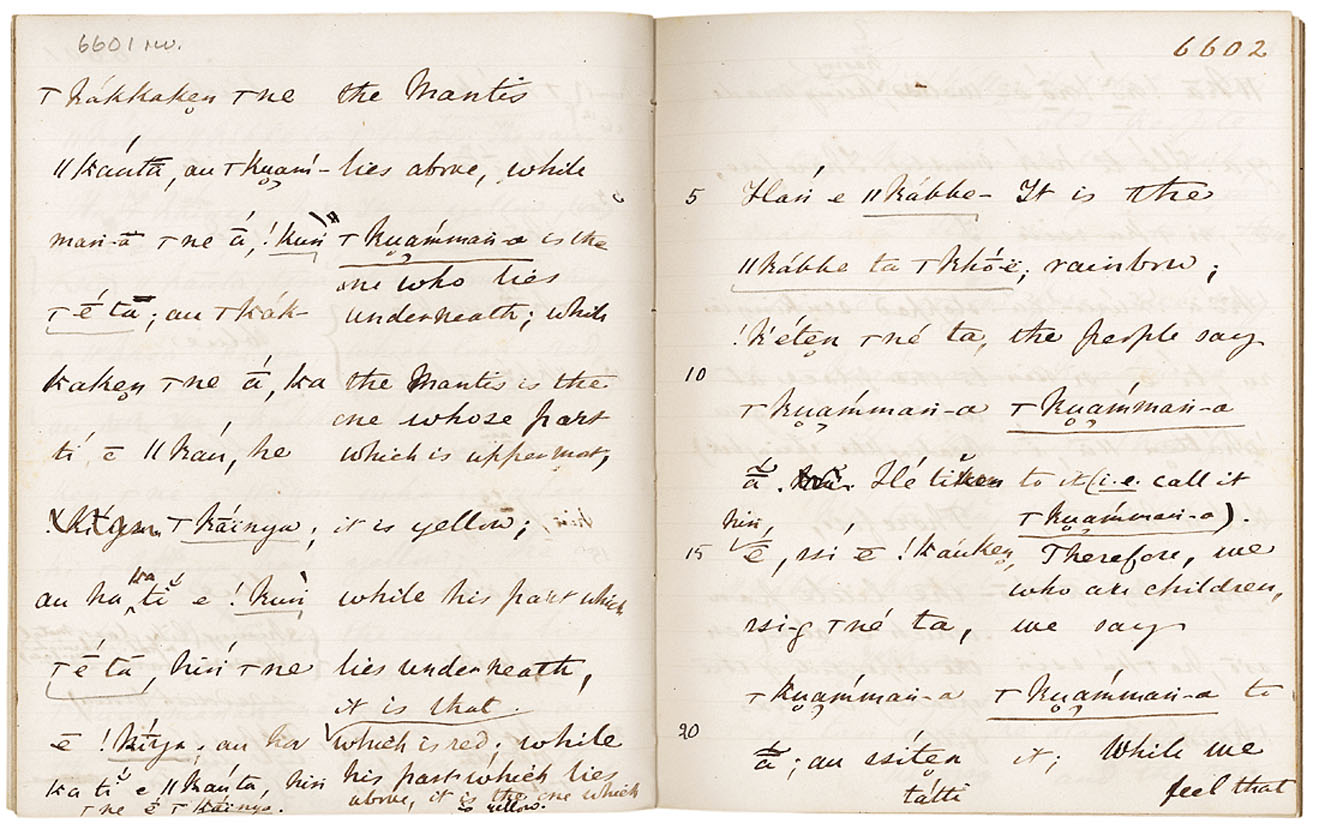 6601 rev.
⊤kákkaken ⊤ne the Mantis
ǁkáuta, au ⊤kuam- lies above, while
maṅ-a ⊤ne ā, !kuṅ ⊤kuamman-a is the
one who lies
⊤é tā; au ⊤kák- underneath; while
kaken ⊤ne ā, ka the Mantis is the
one whose part
tí ē ǁkáu, he which is uppermost,
⊤káinya, it is yellow;
au ha ka tí e !kuṅ while his part which
⊤é tā, hiṅ ⊤ne lies underneath,
it is that
ē !kíya; au ha which is red; while
ka tí e ǁkáuta, hiṅ his part which lies
⊤ne é ⊤káinya. above, it is the one which
is yellow.
6602
5 Haṅ e ǁkábbe- It is the
ǁkábbe ta ⊤khó-ë; rainbow;
!k'éten ⊤né ta, the people say
10
⊤kuámmaṅ-a ⊤kuámmaṅ-a
ā. Hé tíken to it (i.e. call it
hiṅ, ⊤kuámmaṅ-a).
15 ē, ssi ē !kauken, Therefore, we
who are children,
ssi-g ⊤né ta, we say
⊤kuámmaṅ-a ⊤kuámmaṅ-a to
20
ā; au ssíten it; while we
tátti feel that